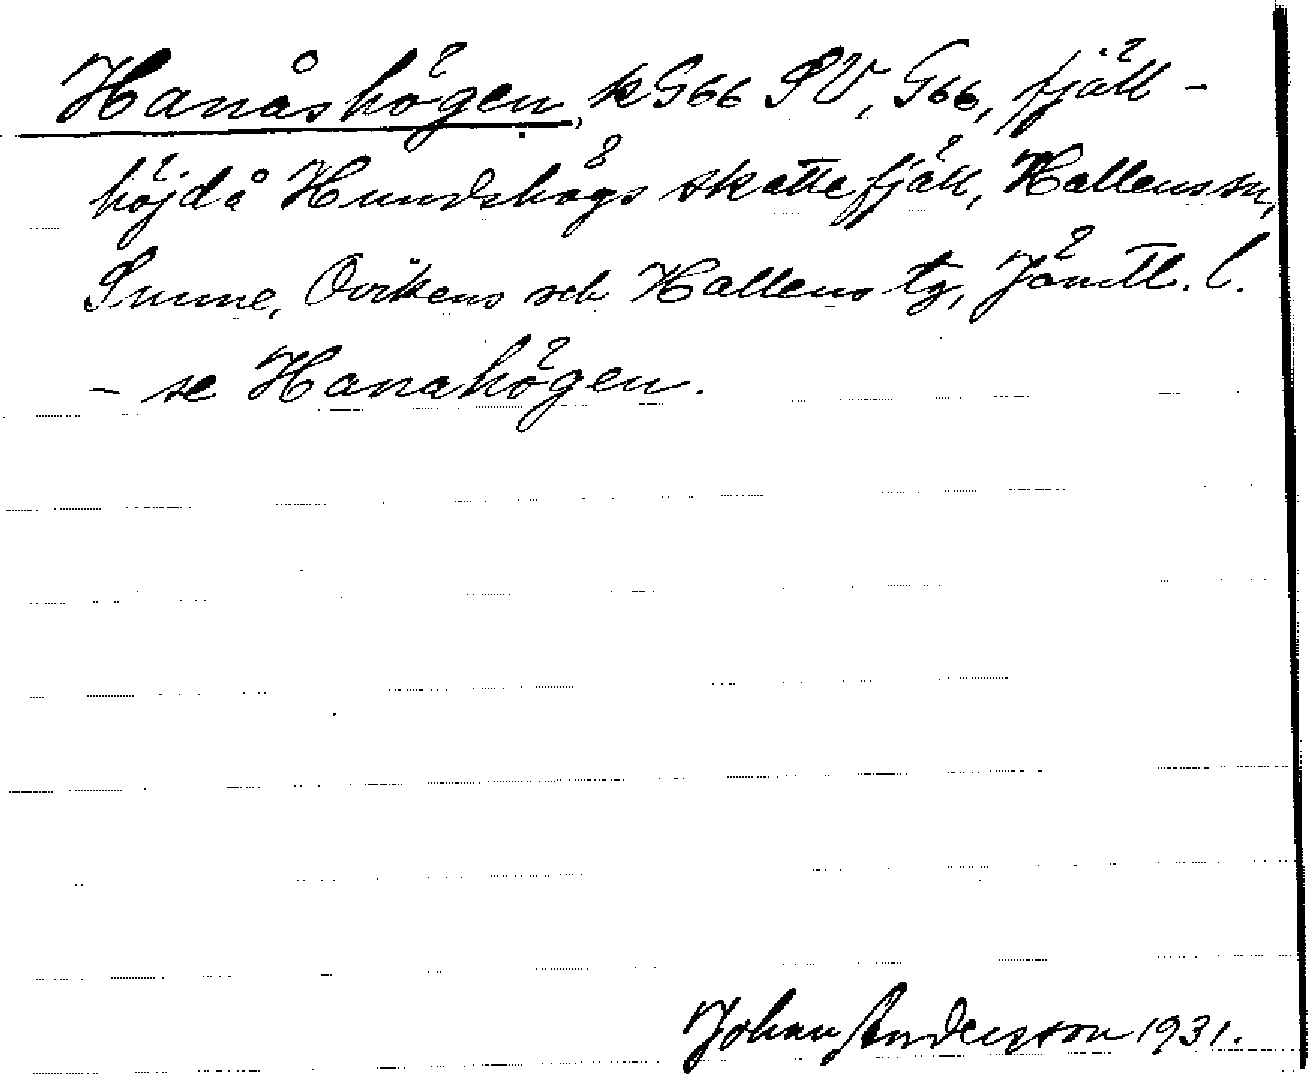 Hanåshögen, k G66 SV, G66, fjäll-
höjd å Hundshögs skattefjäll, Hallens sn,
Sunne, Ovikens och Hallens tg, Jämtl. l.
- se Hanahögen.
Johan Andersson 1931.